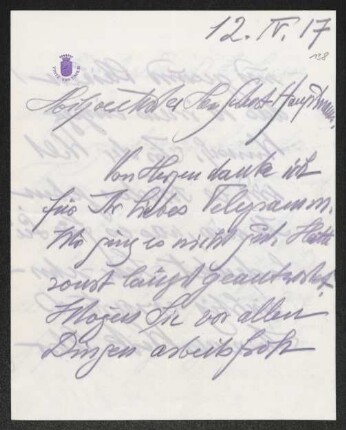 12. IV. 17
128
Hochverehrter Herr Gerhart Hauptmann,
Von Herzen danke ich
für Ihr liebes Telegramm.
Mir ging es nicht gut. Hätte
sonst längst geantwortet.
Mögen Sie vor allen
Dingen arbeitsfroh